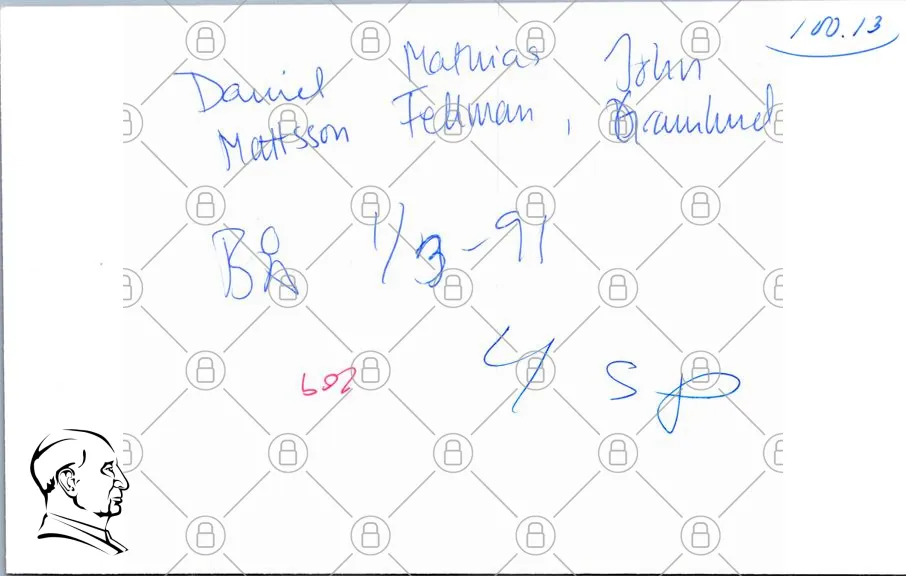 100.13
Daniel Mathias John
Mattsson Fellman, Gramlund
BÅ 1/3-91
4 sp